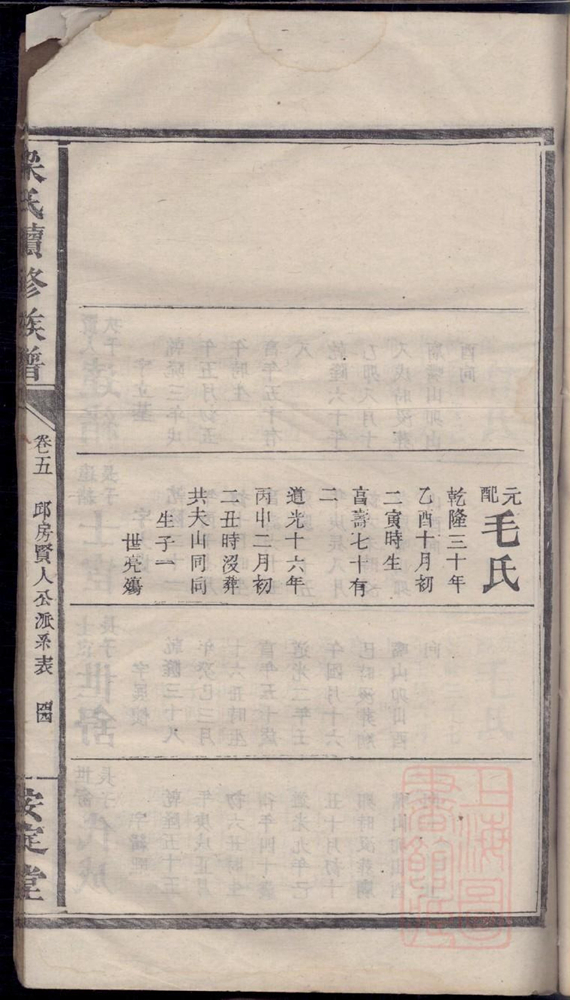 元配毛氏
乾隆三十年
乙酉十月初
二寅時生
享壽七十有
二
道光十六年
丙申二月初
二丑時沒葬
共夫山同同
生子一
世堯殤
氏續修族譜
卷五
邱房賢人公派系表
四
安定堂
上海圖書館藏